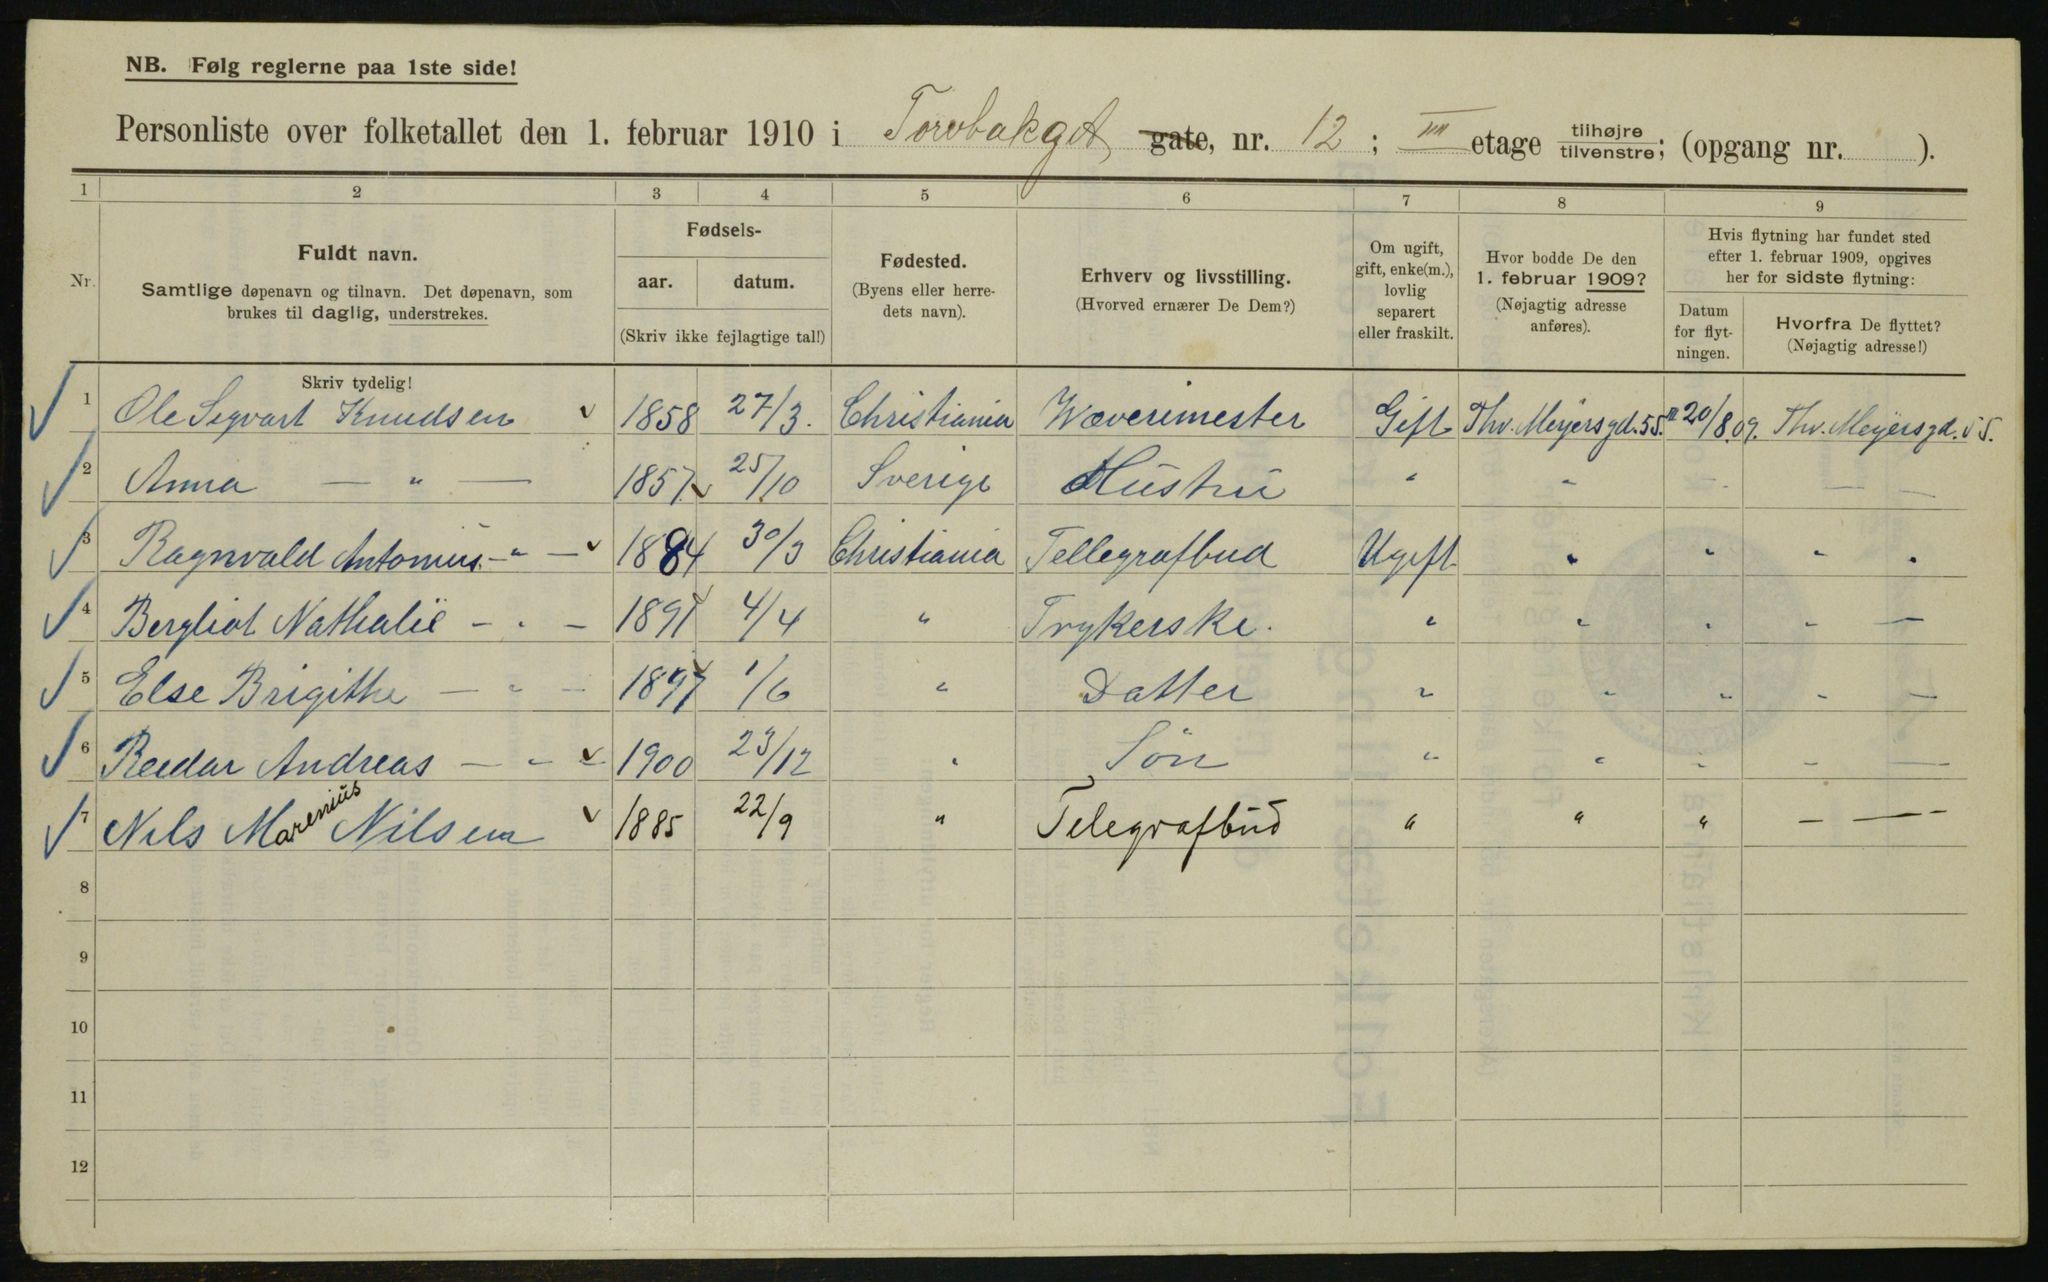 NB. Følg reglerne paa 1ste side!
Personliste over folketallet den 1. februar 1910 i Torvbakgt gate, nr. 12 ; III etage tilhøjre tilvenstre; (opgang nr. ).
1 2 3 4 5 6 7 8 9
Nr. Fuldt navn. Samtlige døpenavn og tilnavn. Det døpenavn, som brukes til daglig, understrekes.
Fødsels- aar. datum. (Skriv ikke fejlagtige tal!)
Fødested. (Byens eller herredets navn).
Erhverv og livsstilling. (Hvorved ernærer De Dem?)
Om ugift, gift, enke(m.), lovlig separert eller fraskilt.
Hvor bodde De den 1. februar 1909? (Nøjagtig adresse anføres).
Hvis flytning har fundet sted efter 1. februar 1909, opgives her for sidste flytning:
Datum for flytningen. Hvorfra De flyttet? (Nøjagtig adresse!)
Skriv tydelig!
1 Ole Segvart Knudsen 1858 27/3. Christiania Wæverimester Gift Thv. Meyersgd. 55. III 20/8 09. Thv. Meyersgd. 55.
2 Anna — " — 1857 25/10 Sverige Hustru " " - — —
3 Ragnvald Antonius - " — 1884 30/3 Christiania Tellegrafbud Ugift " " " "
4 Bergliot Nathalie - " - 1891 4/4 " Trykerske. " " " " —
5 Else Brigithe — " — 1897 1/6 " Datter " " " " —
6 Reidar Andreas — " — 1900 23/12 " Sön " " - - —
7 Nils Marenius Nilsen 1885 22/9 " Telegrafbud " " " — —
8
9
10
11
12